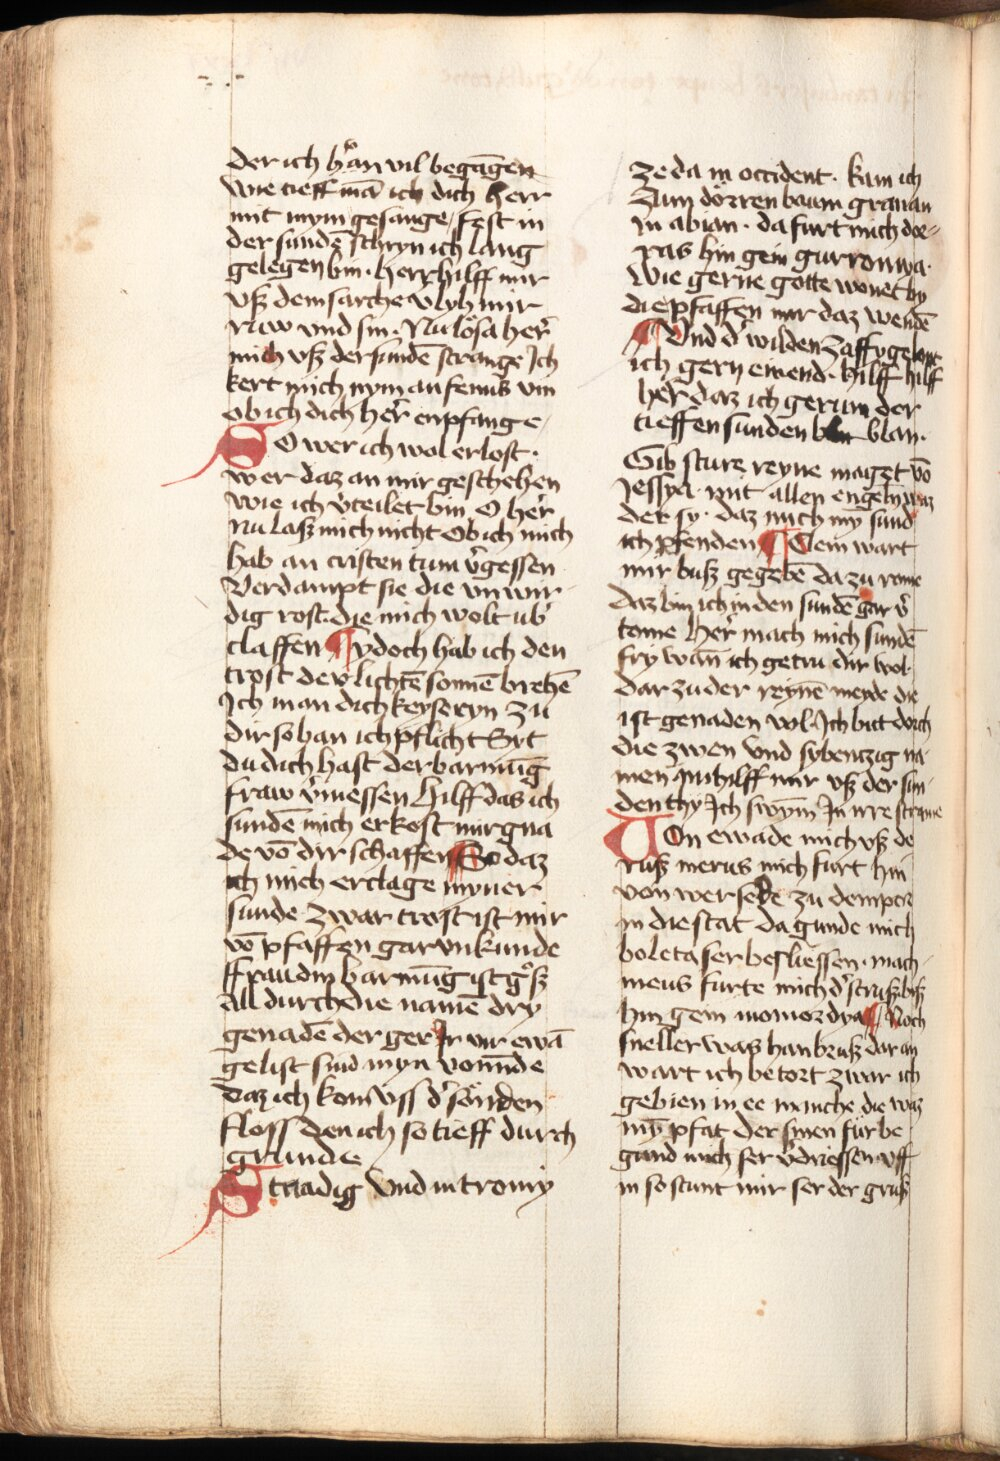 der ich hͦan vil begāgen
Wie tieff mā ich dich herr
mit mym gesange / fest in
der sundē schryn ich lang
gelegen bin · herr hilff mir
vß dem sarche v̄lyh mir
ruw vnd sin · Nu lösa her̄
mich vß der sundē strange Ich
kert mich nym an fenus vin
ob ich dich her̄ enpfange
SO wer ich wol erlost ·
wer daz an mir geschehen
wie ich v̄teilet bin O her̄
Nu laß mich nicht Ob ich mich
hab an cristen tum v̄gessen
Verdampt sie die vnwir
dig rost · die mich wolt vb̄
claffen ¶ ydoch hab ich den
trost der lichtē sonnē brehē
Ich man dich keyseryn zu
dir so han ich pflicht Syt
du dich hast der barmūg
fraw v̄messen Hilff das ich
sundē mich erkost mir gna
de vō dir schaffen ¶ So daz
ich mich erclage myner
sunde zwar trost ist mir
vō pfaffen gar vnkunde
ffrau din barmūg ist gͦß
All durch die namē dry
genadē der ger Ir vir ewā
gelist sind myn vormūde
daz ich kom vss d̄ sünden
floss den ich so tieff durch
grunde
Stradig vnd in trony
zeda in occident · kam ich
zum dörren baum grauan
in abian · da furt mich doe
ras hin gein gurronya ·
Wie gerne gotte wonet by
die pfaffen mir daz wendē
¶ Vnd d̄ wilden zaffygelont
ich gern einend · hilff hilff
her̄ daz ich gerum der
tieffen sunden blan ·
Gib sture reyne maget vō
Jessya · mit allen engeln waz
der sy · daz mich my̅ sund
icht pfenden ¶ Clein wart
mir buß gegebē da zu rome
daz bin ich in den sundē gar v̄
tome her̄ mach mich sundē
fry wan̄ ich getru dir wol
dar zu der reynē mende die
ist genaden vol · Ich bitt dorch
die zwen vnd sybentzig na
men Nu hilff mir vß der sun
den thy Ich swym̄ In irre strame
Von ewade mich vß de
ruß merus mich furt hin
von wersede zu demper
in die stat da gunde mich
boletaser besliessen · mach
meus furte mich d̄ struß biß
hin gein momordya ¶ Noch
sneller was han bruß dar an
wart ich betort zwar ich
gebien in ee manche die waz
my̅ pfat der sinen für be
gund mich ser v̄driessen · vff
in so stunt mir ser der gruß